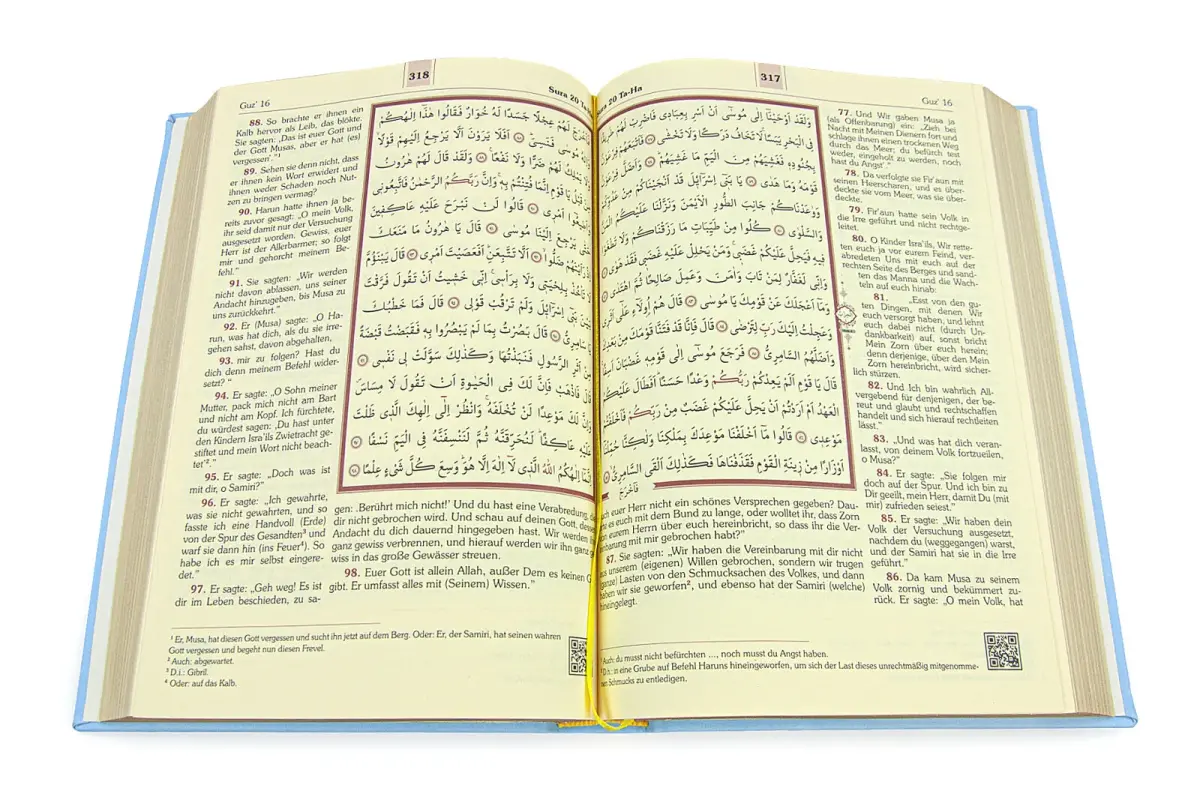 317
Sura 20 Ta-Ha
Guz' 16
وَلَقَدْ أَوْحَيْنَا إِلَىٰ مُوسَىٰ أَنْ أَسْرِ بِعِبَادِي فَاضْرِبْ لَهُمْ
فِي الْبَحْرِ يَبَسًا لَا تَخَافُ دَرَكًا وَلَا تَخْشَىٰ ﴿٧٧﴾ فَأَتْبَعَهُمْ فِرْعَوْنُ
بِجُنُودِهِ فَغَشِيَهُمْ مِنَ الْيَمِّ مَا غَشِيَهُمْ ﴿٧٨﴾ وَأَضَلَّ فِرْعَوْنُ
قَوْمَهُ وَمَا هَدَىٰ ﴿٧٩﴾ يَا بَنِي إِسْرَائِيلَ قَدْ أَنْجَيْنَاكُمْ مِنْ
وَوَاعَدْنَاكُمْ جَانِبَ الطُّورِ الْأَيْمَنَ وَنَزَّلْنَا عَلَيْكُمُ
وَالسَّلْوَىٰ ﴿٨٠﴾ كُلُوا مِنْ طَيِّبَاتِ مَا رَزَقْنَاكُمْ وَلَا
فِيهِ فَيَحِلَّ عَلَيْكُمْ غَضَبِي وَمَنْ يَحْلِلْ عَلَيْهِ غَضَبِي فَقَدْ هَوَىٰ
وَإِنِّي لَغَفَّارٌ لِمَنْ تَابَ وَآمَنَ وَعَمِلَ صَالِحًا ثُمَّ اهْتَدَىٰ
وَمَا أَعْجَلَكَ عَنْ قَوْمِكَ يَا مُوسَىٰ ﴿٨٣﴾ قَالَ هُمْ أُولَاءِ عَلَىٰ أَثَرِي
وَعَجِلْتُ إِلَيْكَ رَبِّ لِتَرْضَىٰ ﴿٨٤﴾ قَالَ فَإِنَّا قَدْ فَتَنَّا قَوْمَكَ مِنْ بَعْدِكَ
وَأَضَلَّهُمُ السَّامِرِيُّ ﴿٨٥﴾ فَرَجَعَ مُوسَىٰ إِلَىٰ قَوْمِهِ غَضْبَانَ أَسِفًا
قَالَ يَا قَوْمِ أَلَمْ يَعِدْكُمْ رَبُّكُمْ وَعْدًا حَسَنًا أَفَطَالَ عَلَيْكُمُ
الْعَهْدُ أَمْ أَرَدْتُمْ أَنْ يَحِلَّ عَلَيْكُمْ غَضَبٌ مِنْ رَبِّكُمْ فَأَخْلَفْتُمْ
مَوْعِدِي ﴿٨٦﴾ قَالُوا مَا أَخْلَفْنَا مَوْعِدَكَ بِمَلْكِنَا وَلَٰكِنَّا حُمِّلْنَا
أَوْزَارًا مِنْ زِينَةِ الْقَوْمِ فَقَذَفْنَاهَا فَكَذَٰلِكَ أَلْقَى السَّامِرِيُّ ﴿٨٧﴾
فَأَخْرَجَ
77. Und Wir gaben Musa ja
(als Offenbarung) ein: „Zieh bei
Nacht mit Meinen Dienern fort und
schlage ihnen einen trockenen Weg
durch das Meer; du befürch test
weder, eingeholt zu werden, noch
hast du Angst¹.
78. Da verfolgte sie Fir'aun mit
seinen Heerscharen, und es über-
deckte sie vom Meer, was sie über-
deckte.
79. Fir'aun hatte sein Volk in
die Irre geführt und nicht rechtge-
leitet.
80. O Kinder Isra'ils, Wir rette-
ten euch ja vor eurem Feind, ver-
abredeten Uns mit euch auf der
rechten Seite des Berges und sand-
ten das Manna und die Wach-
teln auf euch hinab:
81. „Esst von den gu-
ten Dingen, mit denen Wir
euch versorgt haben, und lehnt
euch dabei nicht (durch Un-
dankbarkeit) auf, sonst bricht
Mein Zorn über euch herein;
denn derjenige, über den Mein
Zorn hereinbricht, wird sicher-
lich stürzen.
82. Und Ich bin wahrlich All-
vergebend für denjenigen, der be-
reut und glaubt und rechtschaffen
handelt und sich hierauf rechtleiten
lässt.“
83. „Und was hat dich veran-
lasst, von deinem Volk fortzueilen,
o Musa?“
84. Er sagte: „Sie folgen mir
doch auf der Spur. Und ich bin zu
Dir geeilt, mein Herr, damit Du (mit
mir) zufrieden seiest.“
85. Er sagte: „Wir haben dein
Volk der Versuchung ausgesetzt,
nachdem du (weggegangen) warst,
und der Samiri hat sie in die Irre
geführt.“
86. Da kam Musa zu seinem
Volk zornig und bekümmert zu-
rück. Er sagte: „O mein Volk, hat
euch euer Herr nicht ein schönes Versprechen gegeben? Dau-
erte es euch mit dem Bund zu lange, oder wolltet ihr, dass Zorn
von eurem Herrn über euch hereinbricht, so dass ihr die Ver-
einbarung mit mir gebrochen habt?“
87. Sie sagten: „Wir haben die Vereinbarung mit dir nicht
aus unserem (eigenen) Willen gebrochen, sondern wir trugen
(ganze) Lasten von den Schmucksachen des Volkes, und dann
haben wir sie geworfen², und ebenso hat der Samiri (welche)
hineingelegt.
¹ Auch: du musst nicht befürchten ..., noch musst du Angst haben.
² D.i.: in eine Grube auf Befehl Haruns hineingeworfen, um sich der Last dieses unrechtmäßig mitgenomme-
nen Schmucks zu entledigen.
318
Guz' 16
Sura 20 Ta-
فَأَخْرَجَ لَهُمْ عِجْلًا جَسَدًا لَهُ خُوَارٌ فَقَالُوا هَٰذَا إِلَٰهُكُمْ
وَإِلَٰهُ مُوسَىٰ فَنَسِيَ ﴿٨٨﴾ أَفَلَا يَرَوْنَ أَلَّا يَرْجِعُ إِلَيْهِمْ قَوْلًا
وَلَا يَمْلِكُ لَهُمْ ضَرًّا وَلَا نَفْعًا ﴿٨٩﴾ وَلَقَدْ قَالَ لَهُمْ هَارُونُ
مِنْ قَبْلُ يَا قَوْمِ إِنَّمَا فُتِنْتُمْ بِهِ وَإِنَّ رَبَّكُمُ الرَّحْمَٰنُ فَاتَّبِعُونِي
وَأَطِيعُوا أَمْرِي ﴿٩٠﴾ قَالُوا لَنْ نَبْرَحَ عَلَيْهِ عَاكِفِينَ
حَتَّىٰ يَرْجِعَ إِلَيْنَا مُوسَىٰ ﴿٩١﴾ قَالَ يَا هَارُونُ مَا مَنَعَكَ
إِذْ رَأَيْتَهُمْ ضَلُّوا ﴿٩٢﴾ أَلَّا تَتَّبِعَنِ أَفَعَصَيْتَ أَمْرِي ﴿٩٣﴾ قَالَ يَبْنَؤُمَّ
لَا تَأْخُذْ بِلِحْيَتِي وَلَا بِرَأْسِي إِنِّي خَشِيتُ أَنْ تَقُولَ فَرَّقْتَ
بَيْنَ بَنِي إِسْرَائِيلَ وَلَمْ تَرْقُبْ قَوْلِي ﴿٩٤﴾ قَالَ فَمَا خَطْبُكَ
يَا سَامِرِيُّ ﴿٩٥﴾ قَالَ بَصُرْتُ بِمَا لَمْ يَبْصُرُوا بِهِ فَقَبَضْتُ قَبْضَةً
مِنْ أَثَرِ الرَّسُولِ فَنَبَذْتُهَا وَكَذَٰلِكَ سَوَّلَتْ لِي نَفْسِي ﴿٩٦﴾
قَالَ فَاذْهَبْ فَإِنَّ لَكَ فِي الْحَيٰوةِ أَنْ تَقُولَ لَا مِسَاسَ
وَإِنَّ لَكَ مَوْعِدًا لَنْ تُخْلَفَهُ وَانْظُرْ إِلَىٰ إِلَٰهِكَ الَّذِي ظَلْتَ
عَلَيْهِ عَاكِفًا لَنُحَرِّقَنَّهُ ثُمَّ لَنَنْسِفَنَّهُ فِي الْيَمِّ نَسْفًا ﴿٩٧﴾
إِنَّمَا إِلَٰهُكُمُ اللَّهُ الَّذِي لَا إِلَٰهَ إِلَّا هُوَ وَسِعَ كُلَّ شَيْءٍ عِلْمًا ﴿٩٨﴾
88. So brachte er ihnen ein
Kalb hervor als Leib, das blökte.
Sie sagten: „Das ist euer Gott und
der Gott Musas, aber er hat (es)
vergessen¹.“
89. Sehen sie denn nicht, dass
er ihnen kein Wort erwidert und
ihnen weder Schaden noch Nut-
zen zu bringen vermag?
90. Harun hatte ihnen ja be-
reits zuvor gesagt: „O mein Volk,
ihr seid damit nur der Versuchung
ausgesetzt worden. Gewiss, euer
Herr ist der Allerbarmer; so folgt
mir und gehorcht meinem Be-
fehl.“
91. Sie sagten: „Wir werden
nicht davon ablassen, uns seiner
Andacht hinzugeben, bis Musa zu
uns zurückkehrt.“
92. Er (Musa) sagte: „O Ha-
run, was hat dich, als du sie irre-
gehen sahst, davon abgehalten,
93. mir zu folgen? Hast du
dich denn meinem Befehl wider-
setzt?“
94. Er sagte: „O Sohn meiner
Mutter, pack mich nicht am Bart
und nicht am Kopf. Ich fürchtete,
du würdest sagen: ‚Du hast unter
den Kindern Isra'ils Zwietracht ge-
stiftet und mein Wort nicht beach-
tet‘².“
95. Er sagte: „Doch was ist
mit dir, o Samiri?“
96. Er sagte: „Ich gewahrte,
was sie nicht gewahrten, und so
fasste ich eine Handvoll (Erde)
von der Spur des Gesandten³ und
warf sie dann hin (ins Feuer⁴). So
habe ich es mir selbst eingere-
det.“
97. Er sagte: „Geh weg! Es ist
dir im Leben beschieden, zu sa-
gen: ‚Berührt mich nicht!‘ Und du hast eine Verabredung, die
dir nicht gebrochen wird. Und schau auf deinen Gott, dessen
Andacht du dich dauernd hingegeben hast. Wir werden ihn
ganz gewiss verbrennen, und hierauf werden wir ihn ganz
wiss in das große Gewässer streuen.
98. Euer Gott ist allein Allah, außer Dem es keinen
gibt. Er umfasst alles mit (Seinem) Wissen.“
¹ Er, Musa, hat diesen Gott vergessen und sucht ihn jetzt auf dem Berg. Oder: Er, der Samiri, hat seinen wahren
Gott vergessen und begeht nun diesen Frevel.
² Auch: abgewartet.
³ D.i.: Gibril.
⁴ Oder: auf das Kalb.